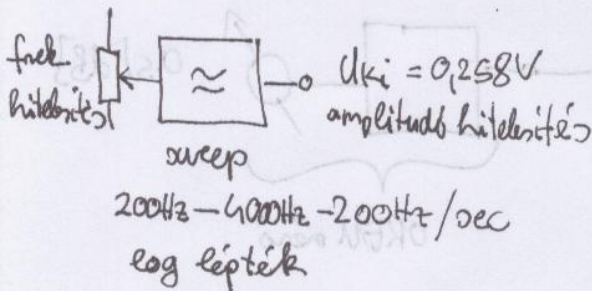 frek.
hitelesítés
≈
Uki = 0,258V
amplitudó hitelesítés
sweep
200Hz – 4000Hz – 200Hz/sec
log lépték